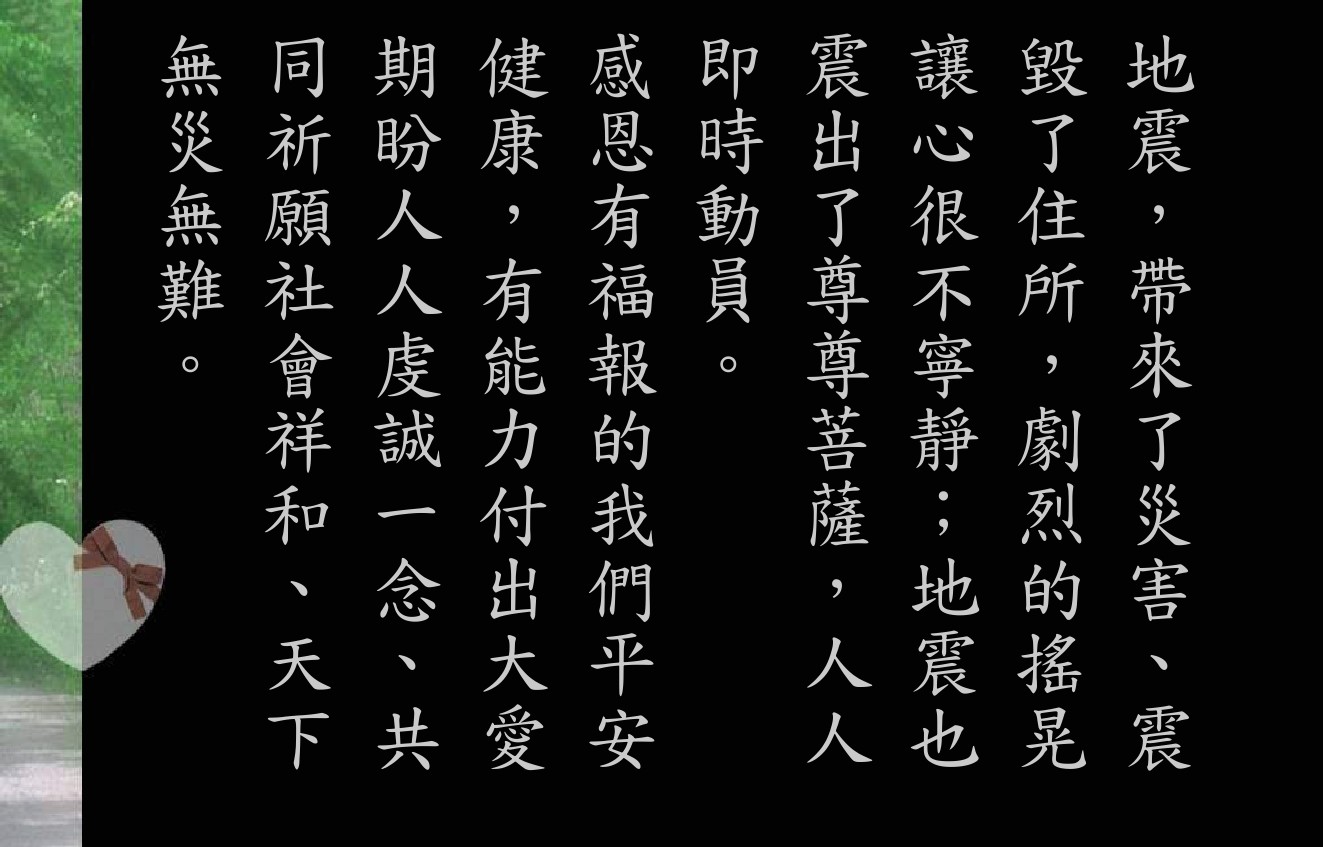 地震，帶來了災害、震
毀了住所，劇烈的搖晃
讓心很不寧靜；地震也
震出了尊尊菩薩，人人
即時動員。
感恩有福報的我們平安
健康，有能力付出大愛
期盼人人虔誠一念、共
同祈願社會祥和、天下
無災無難。